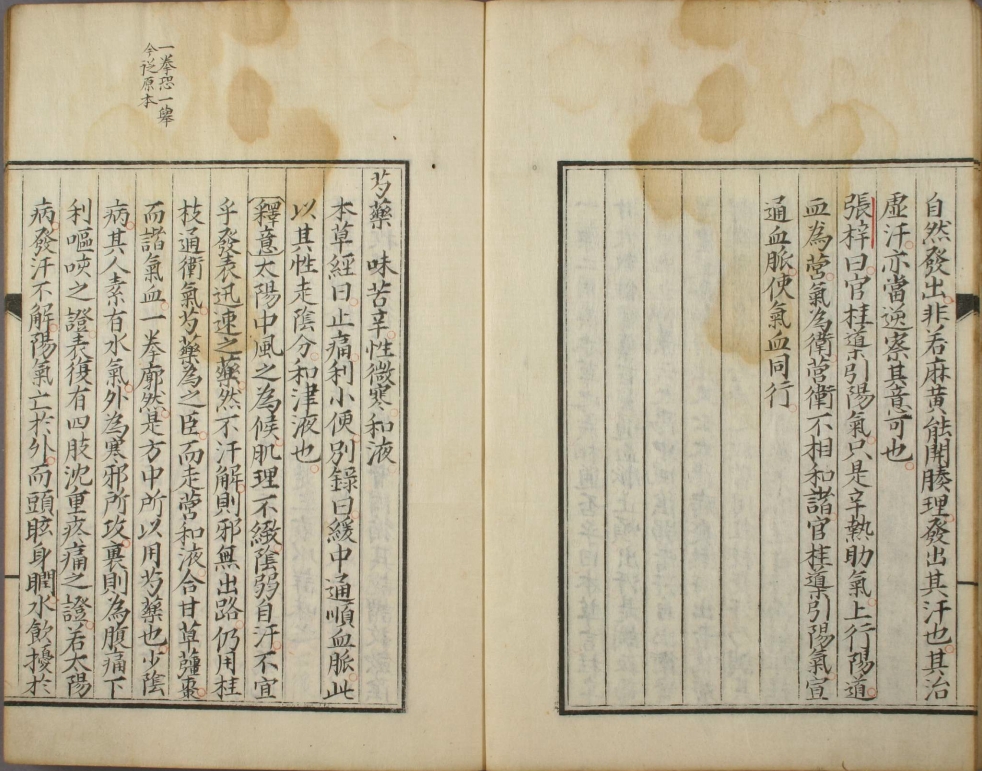 自然發出非若麻黄能開腠理發出其汗也其治
虚汗亦當逆察其意可也
張梓曰官桂導引陽氣只是辛熱助氣上行陽道
血為營氣為衛營衛不相和諧官桂導引陽氣宣
通血脈使氣血同行
一拳恐一舉
今從原本
芍藥　味苦辛性微寒和液
本草經曰止痛利小便別錄曰緩中通順血脈此
以其性走陰分和津液也
釋意太陽中風之為候肌理不緻陰弱自汗不宜
乎發表迅速之藥然不汗解則邪無出路仍用桂
枝通衛氣芍藥為之臣而走營和液合甘草薑棗
而諸氣血一拳廓然是方中所以用芍藥也少陰
病其人素有水氣外為寒邪所攻裏則為腹痛下
利嘔咳之證表復有四肢沈重疼痛之證若太陽
病發汗不解陽氣亡於外而頭眩身瞤水飲擾於